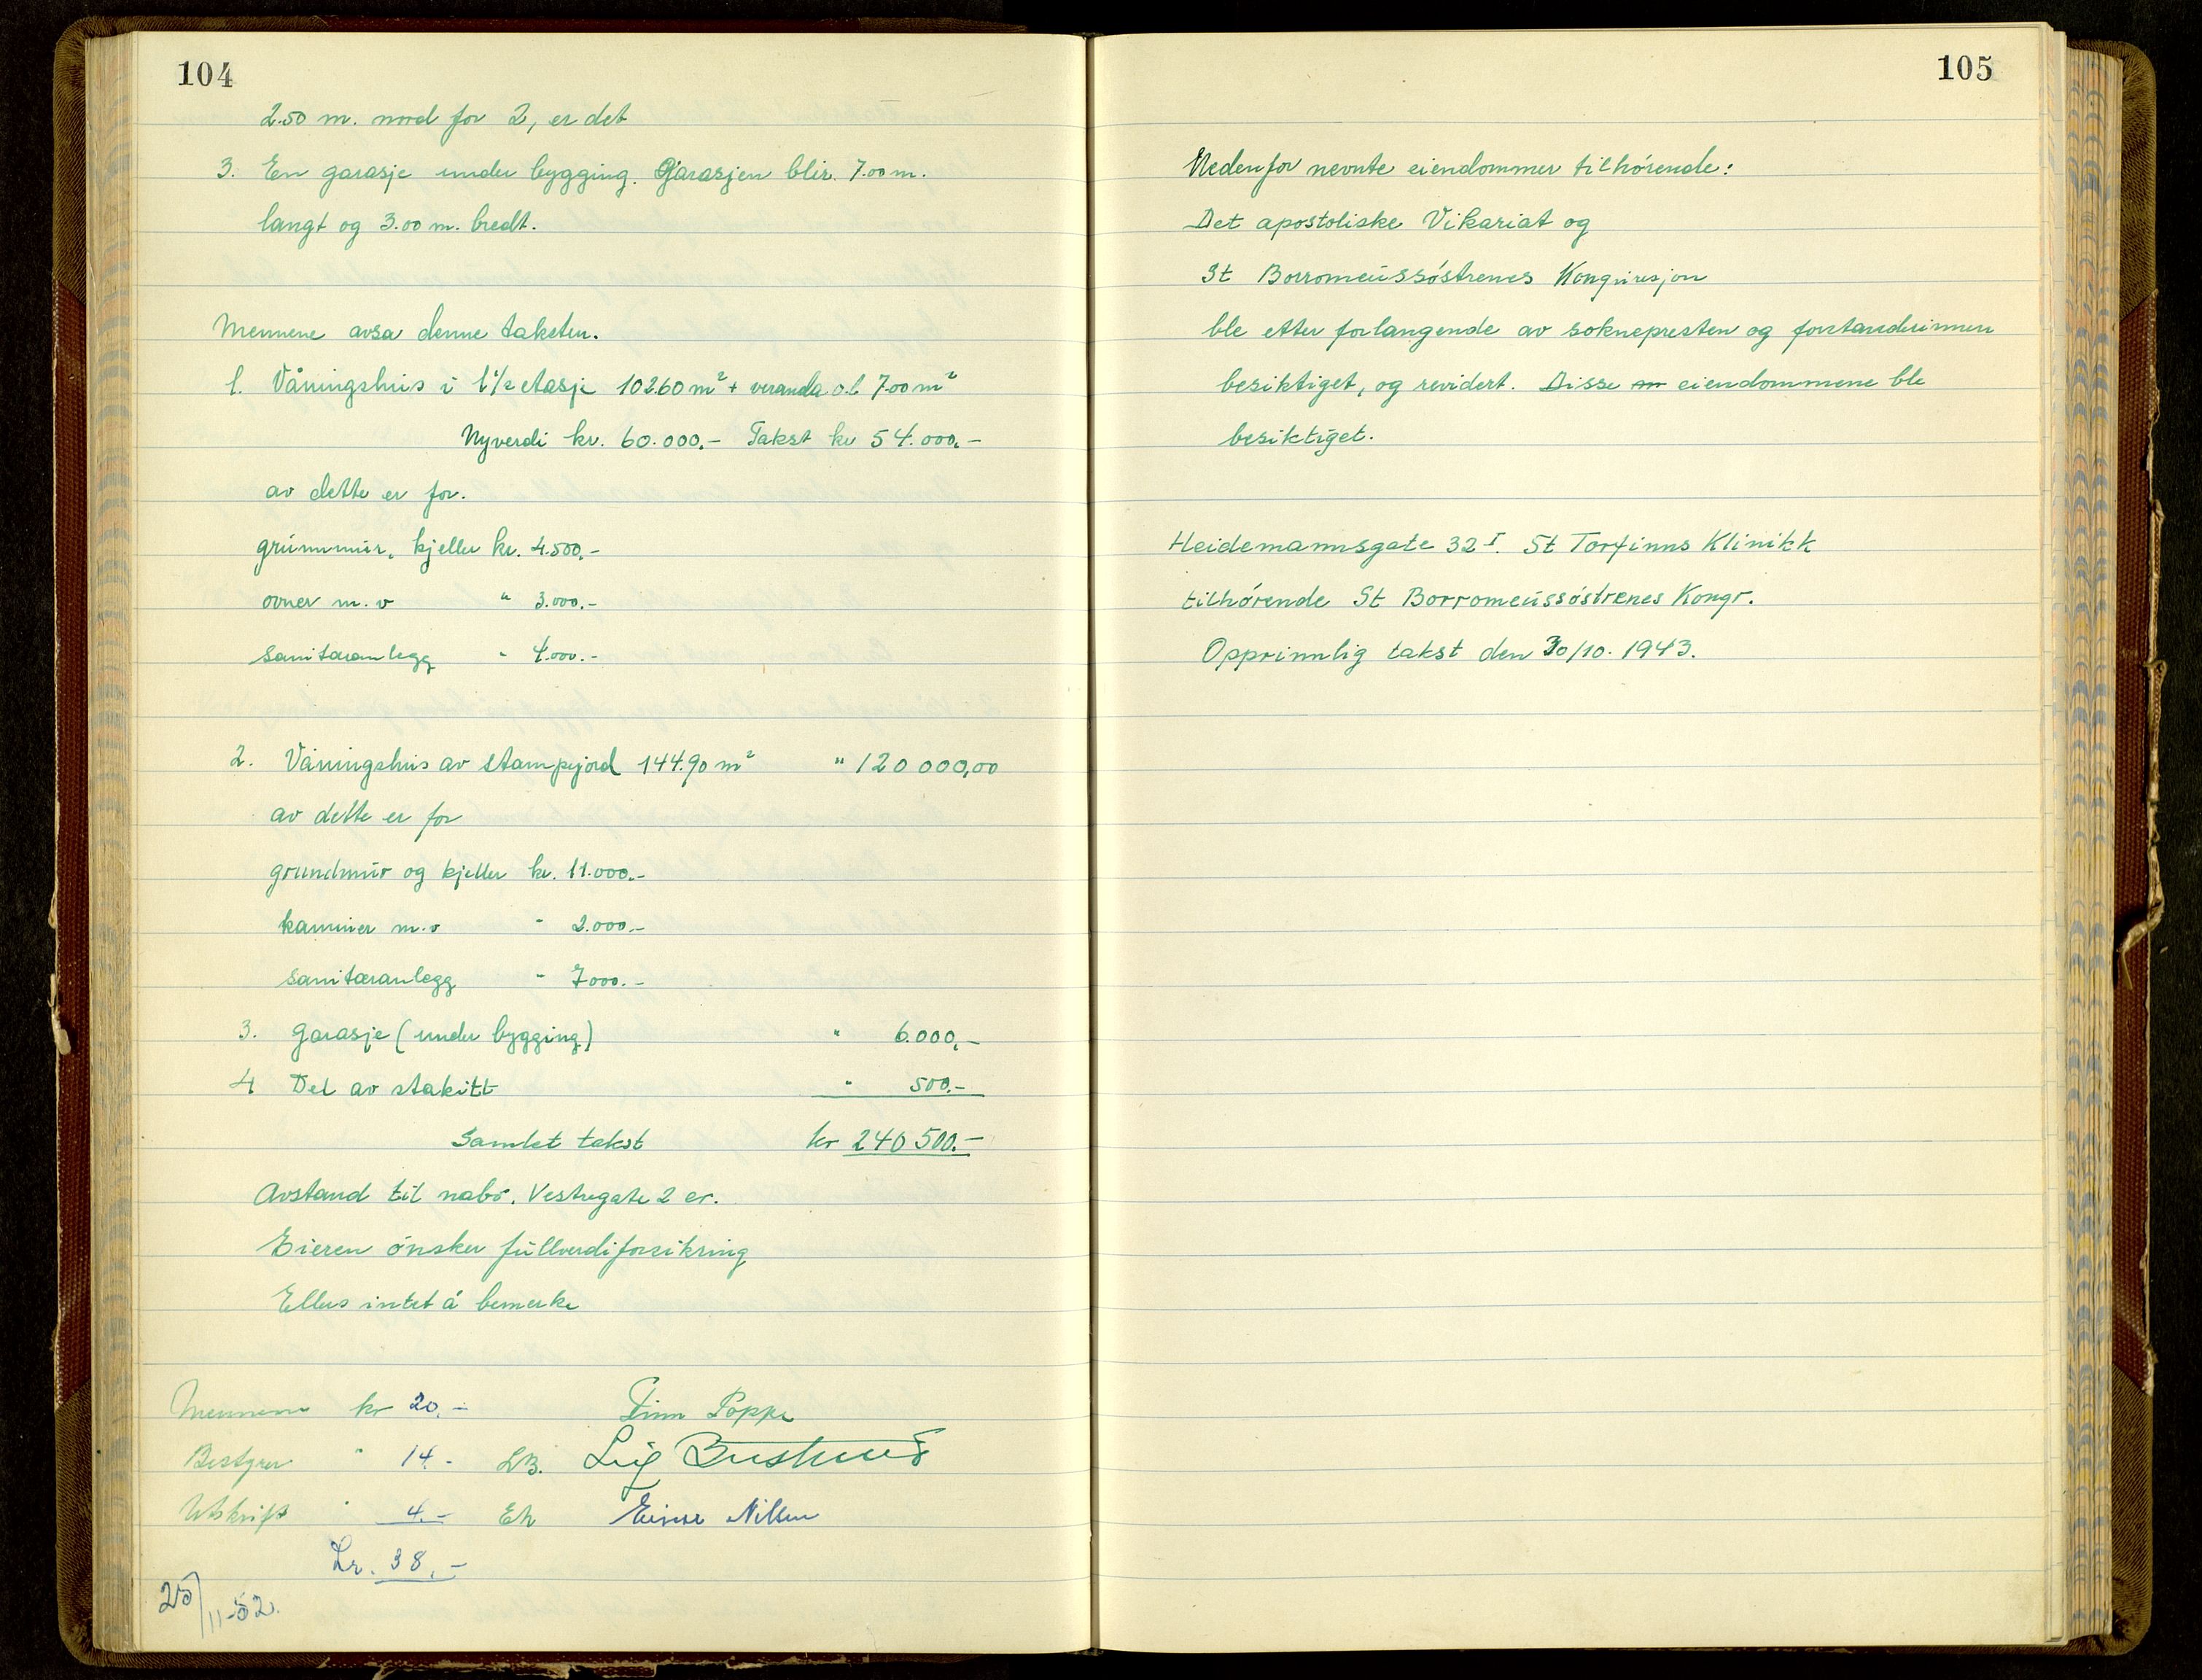 104
2.50 m. nord for 2, er det
3. En garasje under bygging. Garasjen blir. 7.00 m.
langt og 3.00 m. bredt.
Mennene avsa denne taksten.
1. Våningshus i 1½ etasje 102.60 m² + veranda o.l 7.00 m²
Nyverdi kr. 60.000,- Takst kr 54.000,-
av dette er for.
grunnmur, kjeller kr. 4.500,-
ovner m.v " 3.000.-
sanitæranlegg " 4.000.-
2. Våningshus av stampejord 144.90 m² " 120 000,00
av dette er for
grundmur og kjeller kr. 11.000.-
kaminer m.v " 2.000.-
sanitæranlegg " 7000.-
3. garasje (under bygging) " 6.000,-
4 Del av stakitt " 500.-
Samlet takst kr 240 500.-
Avstand til nabo. Vestregate 2 er.
Eieren ønsker fullverdiforsikring
Ellers intet å bemerke
Mennene kr 20.- Finn Poppe
Bestyrer " 14.- LB. Leif
Utskrift " 4.- EN Einar Nilsen
Kr. 38,-
25/11-52.
105
Nedenfor nevnte eiendommer tilhørende:
Det apostoliske Vikariat og
St Borromeussøstrenes Kongresjon
ble etter forlangende av soknepresten og forstanderinnen
besiktiget, og revidert. Disse eiendommene ble
besiktiget.
Heidemannsgate 32 I. St Torfinns Klinikk
tilhørende St Borromeussøstrenes Kongr.
Opprinnlig takst den 30/10. 1943.